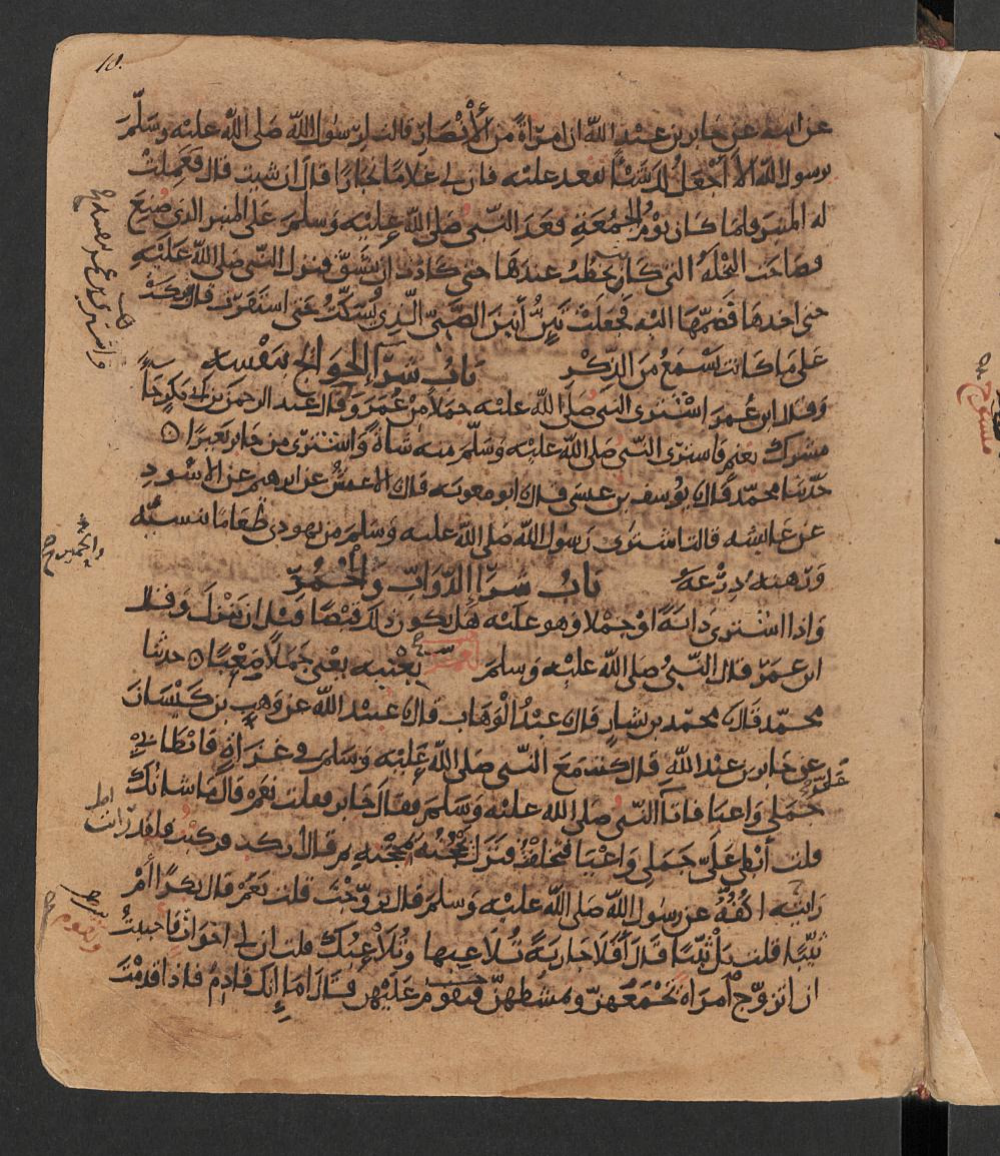 10.
عن ابيه عن جابر بن عبد الله ان امرأة من الأنصار قالت لرسول الله صلى الله عليه وسلم
يرسول الله الا أجعل لك شيئا تقعد عليه فان لي غلاما نجارا قال ان شيت قال فعملت
له المنبر فلما كان يوم الجمعة قعد النبي صلى الله عليه وسلم على المنبر الذي صنع
فصاحت النخلة التي كان يخطب عندها حتى كادت ان تنشق فنزل النبي صلى الله عليه
حتى اخذها فضمها اليه فجعلت تئن أنين الصبي الذي يسكت حتى استقرت قال بكت
على ما كانت تسمع من الذكر باب شرا الحوائج بنفسه
وقال ابن عمر اشترى النبي صلى الله عليه جملا من عمر وقال عبد الرحمن بن ابي بكر جا
مشرك بغنم فاشترى النبي صلى الله عليه وسلم منه شاة واشترى من جابر بعيرا
حدثنا محمد قال يوسف بن عيسى قال ابو معوية قال الاعمش عن ابرهيم عن الاسود
عن عايشه قالت اشترى رسول الله صلى الله عليه وسلم من يهودي طعاما بنسيئة
ورهنه درعه باب شرا الدواب والحمر
واذا اشترى دابة او جملا وهو عليه هل يكون ذلك قبضا قبل ان ينزل وقال
ابن عمر قال النبي صلى الله عليه وسلم لعمر بعنيه يعني جملا صعبا حدثنا
محمد قال محمد بن بشار قال عبد الوهاب قال عبيد الله عن وهب بن كيسان
عن جابر بن عبد الله قال كنت مع النبي صلى الله عليه وسلم في غزاة فابطا بي
جملي واعيا فاتى النبي صلى الله عليه وسلم فقال جابر فقلت نعم قال ما شانك
قلت أبطا علي جملي واعيا فتخلفت فنزل يحجنه بمحجنه ثم قال اركب فركبت فلقد
رايته اكفه عن رسول الله صلى الله عليه وسلم قال تزوجت قلت نعم قال بكرا أم
ثيبا قلت بل ثيبا قال أفلا جارية تلاعبها وتلاعبك قلت ان لي اخوات فاحببت
ان اتزوج امرأة تجمعهن وتمشطهن وتقوم عليهن قال اما إنك قادم فاذا قدمت
والحمير